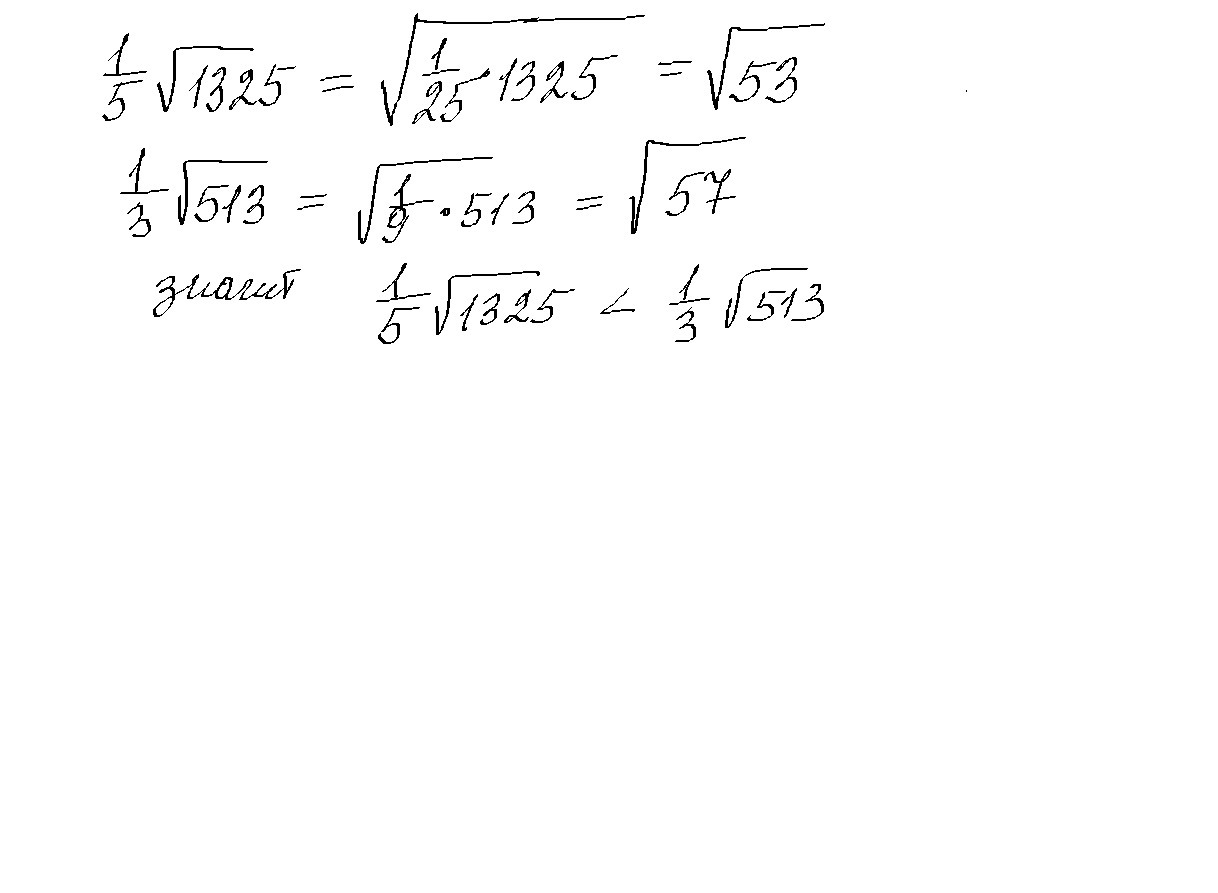 1/5 √1325 = √(1/25 · 1325) = √53
1/3 √513 = √(1/9 · 513) = √57
значит 1/5 √1325 < 1/3 √513